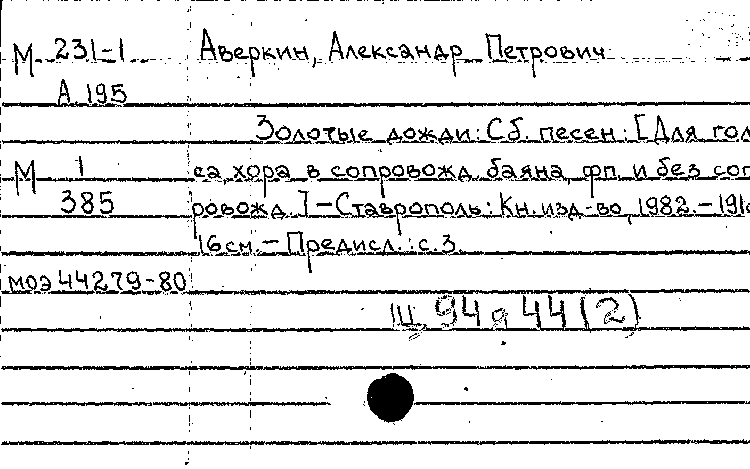 М 231-1 Аверкин, Александр Петрович
А 195
Золотые дожди: Сб. песен: [Для гол
М 1 са, хора в сопровожд. баяна, фп. и без соп
385 ровожд.] - Ставрополь: Кн. изд-во, 1982. - 191с
16см. - Предисл.: с. 3.
моэ 44279-80
Щ 94 я 44 (2)